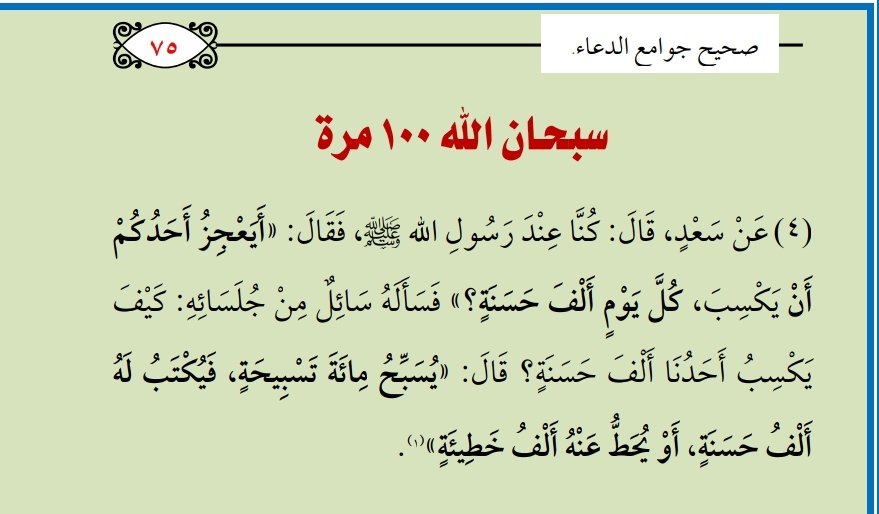 صحيح جوامع الدعاء.
٧٥
سبحان الله ١٠٠ مرة
(٤) عَنْ سَعْدٍ، قَالَ: كُنَّا عِنْدَ رَسُولِ الله ﷺ، فَقَالَ: «أَيَعْجِزُ أَحَدُكُمْ
أَنْ يَكْسِبَ، كُلَّ يَوْمٍ أَلْفَ حَسَنَةٍ؟» فَسَأَلَهُ سَائِلٌ مِنْ جُلَسَائِهِ: كَيْفَ
يَكْسِبُ أَحَدُنَا أَلْفَ حَسَنَةٍ؟ قَالَ: «يُسَبِّحُ مِائَةَ تَسْبِيحَةٍ، فَيُكْتَبُ لَهُ
أَلْفُ حَسَنَةٍ، أَوْ يُحَطُّ عَنْهُ أَلْفُ خَطِيئَةٍ»(١).